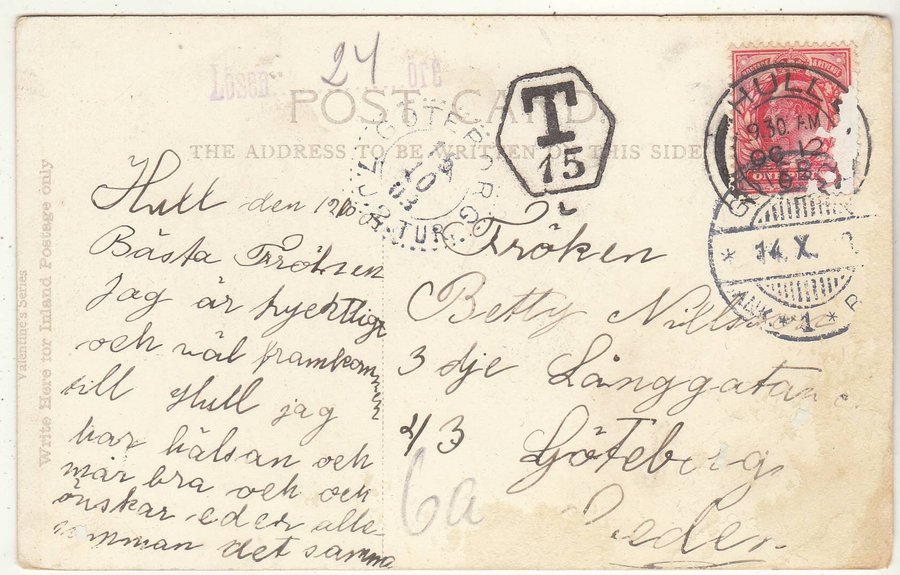 Lösen 24 öre
POST CARD
THE ADDRESS TO BE WRITTEN ON THIS SIDE
T
15
HULL
9.30. AM
OC 12
08
GÖTEBORG
10
08
TUR
14. X.
* 1 *
Valentine's Series
Write Here for Inland Postage only
Hull den 12
Bästa Fröken
Jag är lyckligt
och väl framkommen
till Hull jag
har hälsan och
mår bra och och
önskar eder alle
det samma
Fröken
Betty
3 dje Långgatan
4/3
Göteborg
6a